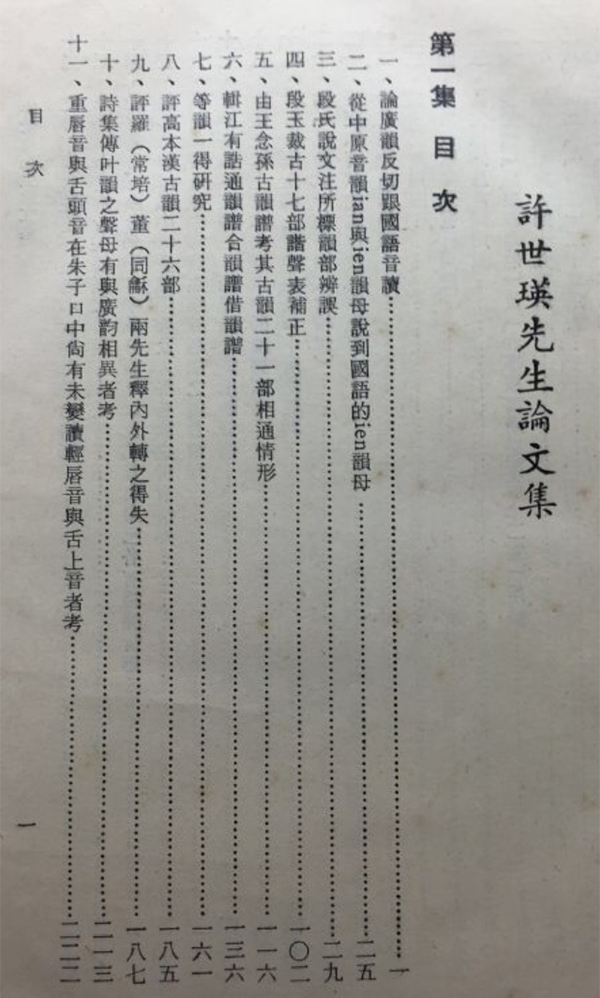 許世瑛先生論文集
第一集 目 次
一、論廣韻反切跟國語音讀……一
二、從中原音韻ian與ien韻母說到國語的ien韻母……二五
三、段氏說文注所標韻部辨誤……二九
四、段玉裁古十七部諧聲表補正……一〇二
五、由王念孫古韻譜考其古韻二十一部相通情形……一一六
六、輯江有誥通韻譜合韻譜借韻譜……一三六
七、等韻一得研究……一六一
八、評高本漢古韻二十六部……一八五
九、評羅（常培）董（同龢）兩先生釋內外轉之得失……一八七
十、詩集傳叶韻之聲母有與廣韵相異者考……二一三
十一、重唇音與舌頭音在朱子口中尙有未變讀輕唇音與舌上音者考……二二二
目 次
一